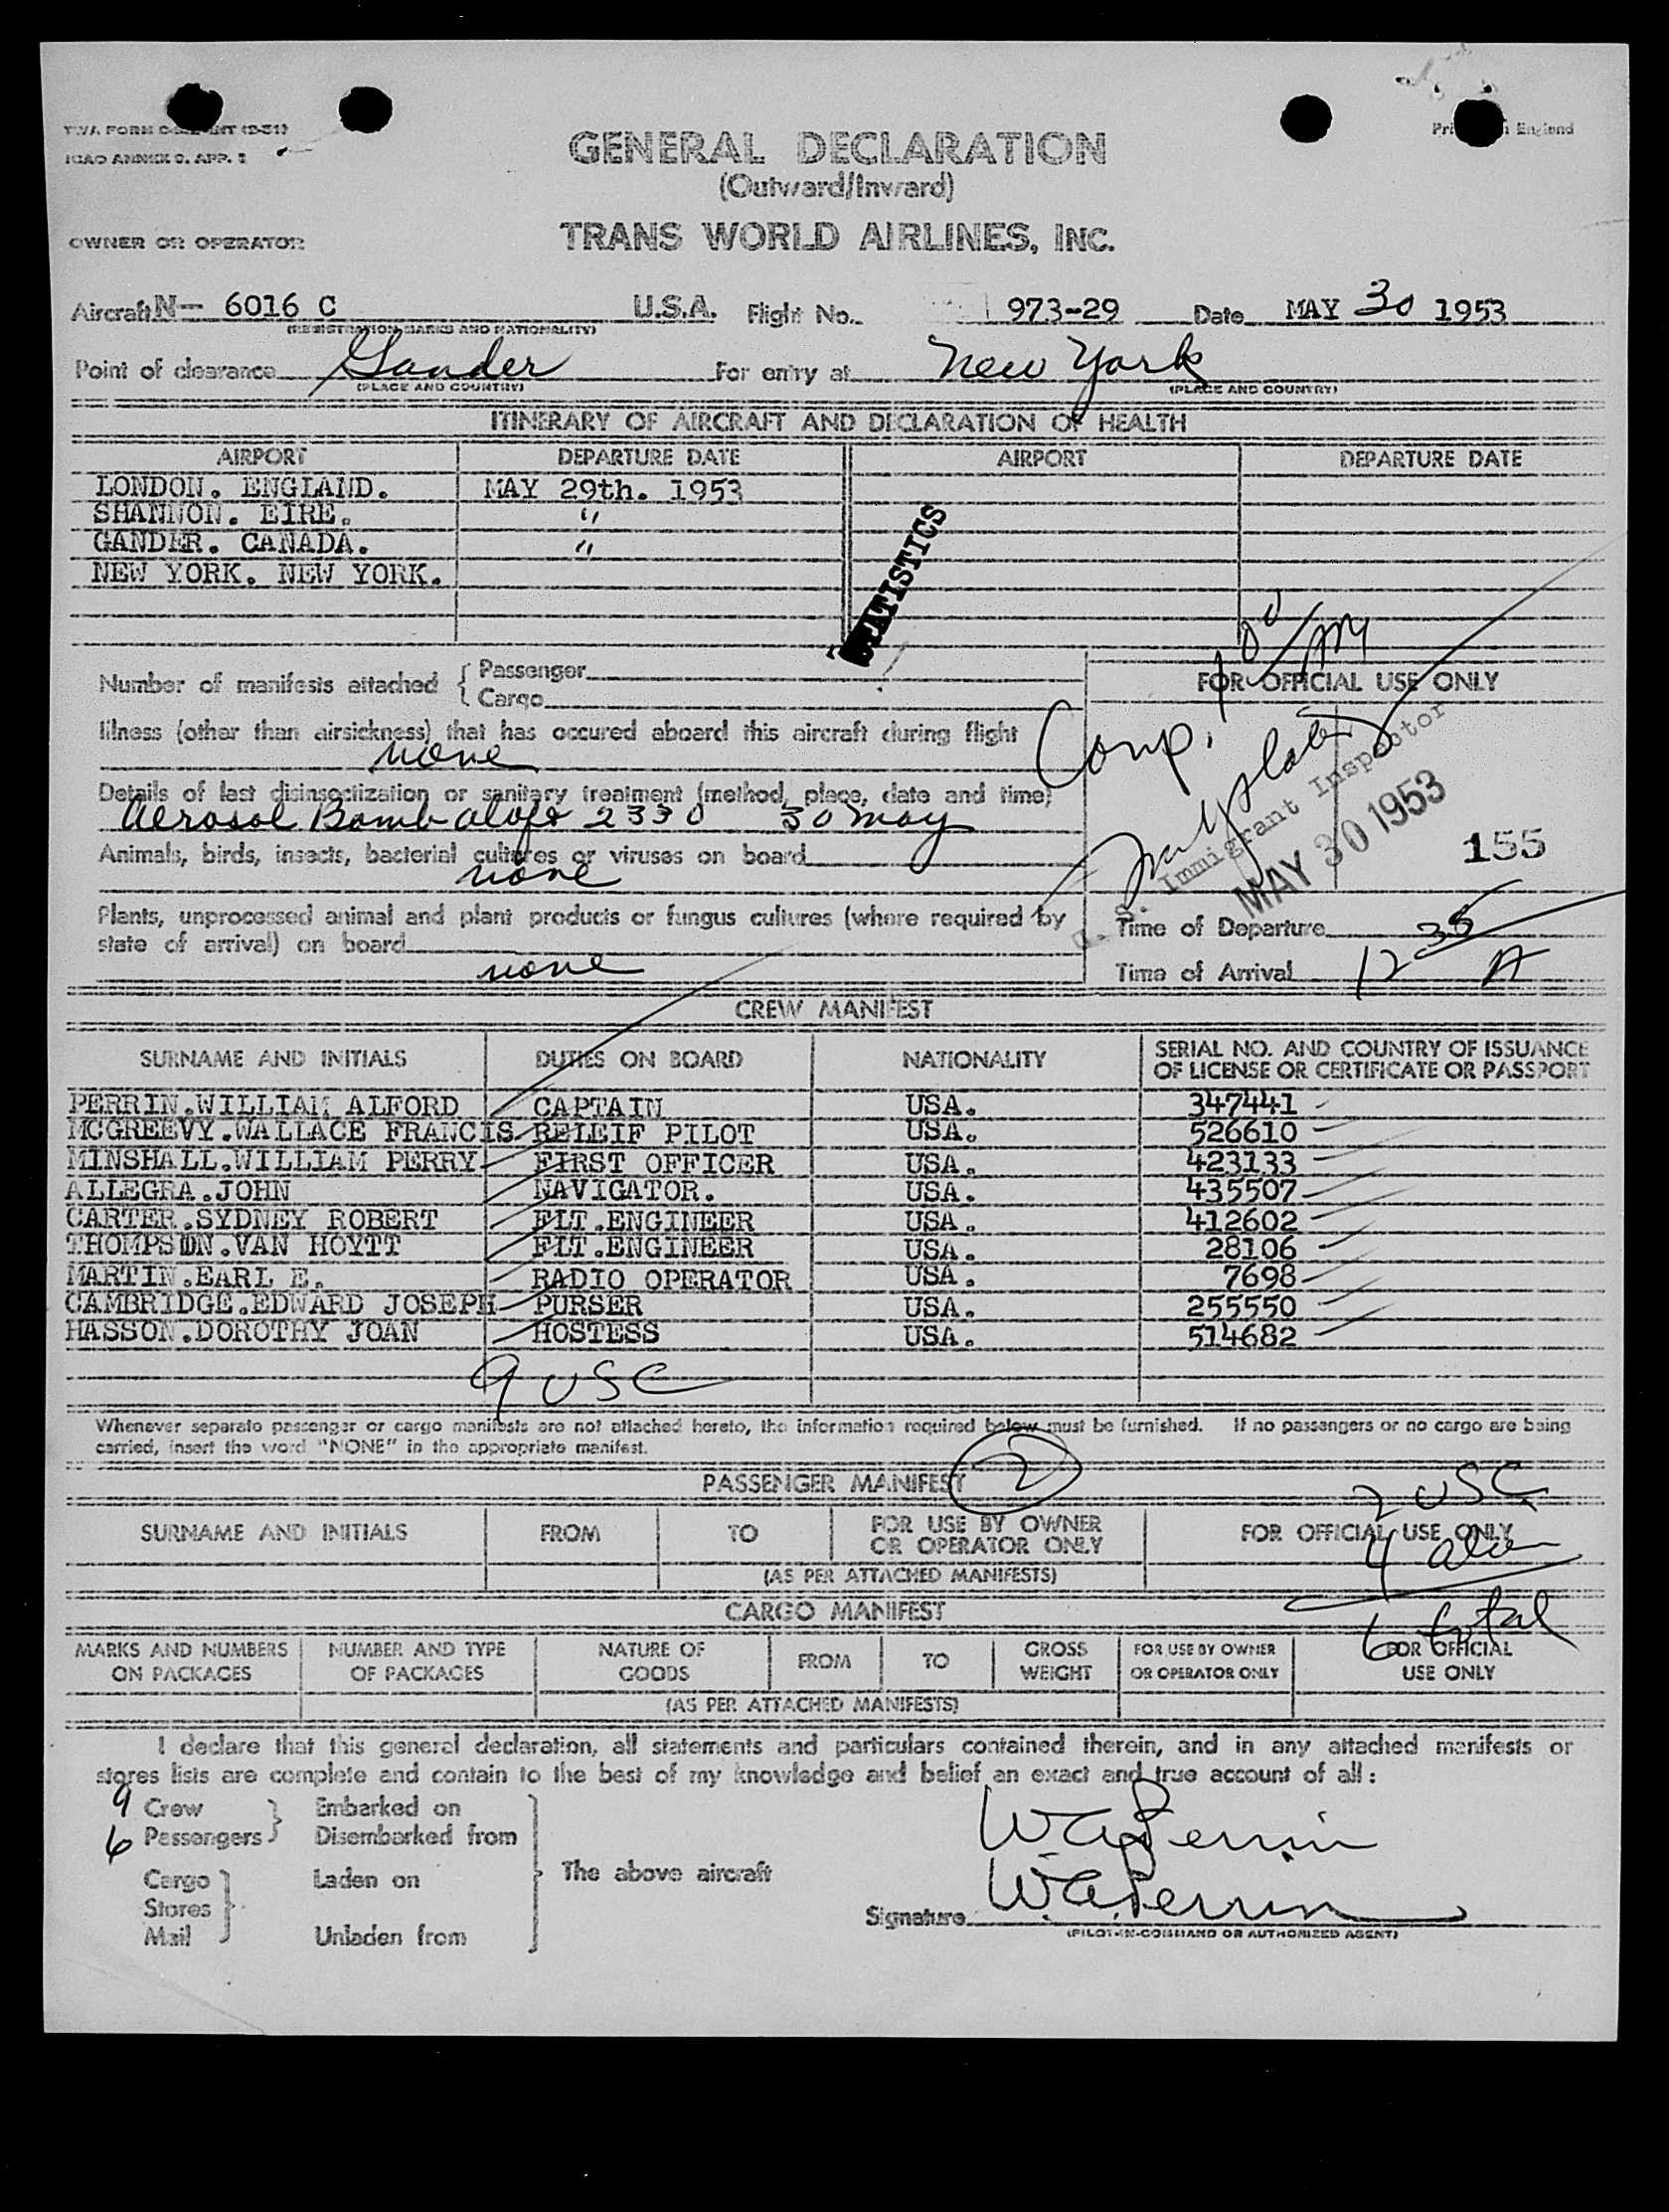 ICAO ANNEX 9. APP. 1
England
GENERAL DECLARATION
(Outward/Inward)
OWNER OR OPERATOR
TRANS WORLD AIRLINES, INC.
Aircraft N- 6016 C U.S.A. Flight No. 973-29 Date MAY 30 1953
(REGISTRATION MARKS AND NATIONALITY)
Point of clearance Gander For entry at New York
(PLACE AND COUNTRY) (PLACE AND COUNTRY)
ITINERARY OF AIRCRAFT AND DECLARATION OF HEALTH
AIRPORT DEPARTURE DATE AIRPORT DEPARTURE DATE
LONDON. ENGLAND. MAY 29th. 1953
SHANNON. EIRE. "
GANDER. CANADA. "
NEW YORK. NEW YORK.
STATISTICS
Number of manifests attached { Passenger
Cargo
FOR OFFICIAL USE ONLY
Illness (other than airsickness) that has occured aboard this aircraft during flight
none
Comp.
Details of last disinsectization or sanitary treatment (method, place, date and time)
Aerosol Bomb aloft 2330 30 may
U. S. Immigrant Inspector
MAY 30 1953
155
Animals, birds, insects, bacterial cultures or viruses on board
none
Plants, unprocessed animal and plant products or fungus cultures (where required by
state of arrival) on board
none
Time of Departure
Time of Arrival 12 35 A
CREW MANIFEST
SURNAME AND INITIALS DUTIES ON BOARD NATIONALITY SERIAL NO. AND COUNTRY OF ISSUANCE
OF LICENSE OR CERTIFICATE OR PASSPORT
PERRIN.WILLIAM ALFORD CAPTAIN USA. 347441
MCGREEVY.WALLACE FRANCIS RELEIF PILOT USA. 526610
MINSHALL.WILLIAM PERRY FIRST OFFICER USA. 423133
ALLEGRA.JOHN NAVIGATOR. USA. 435507
CARTER.SYDNEY ROBERT FLT.ENGINEER USA. 412602
THOMPSON.VAN HOYTT FLT.ENGINEER USA. 28106
MARTIN.EARL E. RADIO OPERATOR USA. 7698
CAMBRIDGE.EDWARD JOSEPH PURSER USA. 255550
HASSON.DOROTHY JOAN HOSTESS USA. 514682
9 USC
Whenever separate passenger or cargo manifests are not attached hereto, the information required below must be furnished. If no passengers or no cargo are being
carried, insert the word "NONE" in the appropriate manifest.
PASSENGER MANIFEST 2
2 USC
SURNAME AND INITIALS FROM TO FOR USE BY OWNER
OR OPERATOR ONLY FOR OFFICIAL USE ONLY
4 alien
(AS PER ATTACHED MANIFESTS)
CARGO MANIFEST
6 total
MARKS AND NUMBERS
ON PACKAGES NUMBER AND TYPE
OF PACKAGES NATURE OF
GOODS FROM TO GROSS
WEIGHT FOR USE BY OWNER
OR OPERATOR ONLY FOR OFFICIAL
USE ONLY
(AS PER ATTACHED MANIFESTS)
I declare that this general declaration, all statements and particulars contained therein, and in any attached manifests or
stores lists are complete and contain to the best of my knowledge and belief an exact and true account of all:
9 Crew Embarked on
6 Passengers Disembarked from
WAPerrin
Cargo Laden on The above aircraft
Stores
Signature W.A.Perrin
Mail Unladen from
(PILOT-IN-COMMAND OR AUTHORIZED AGENT)